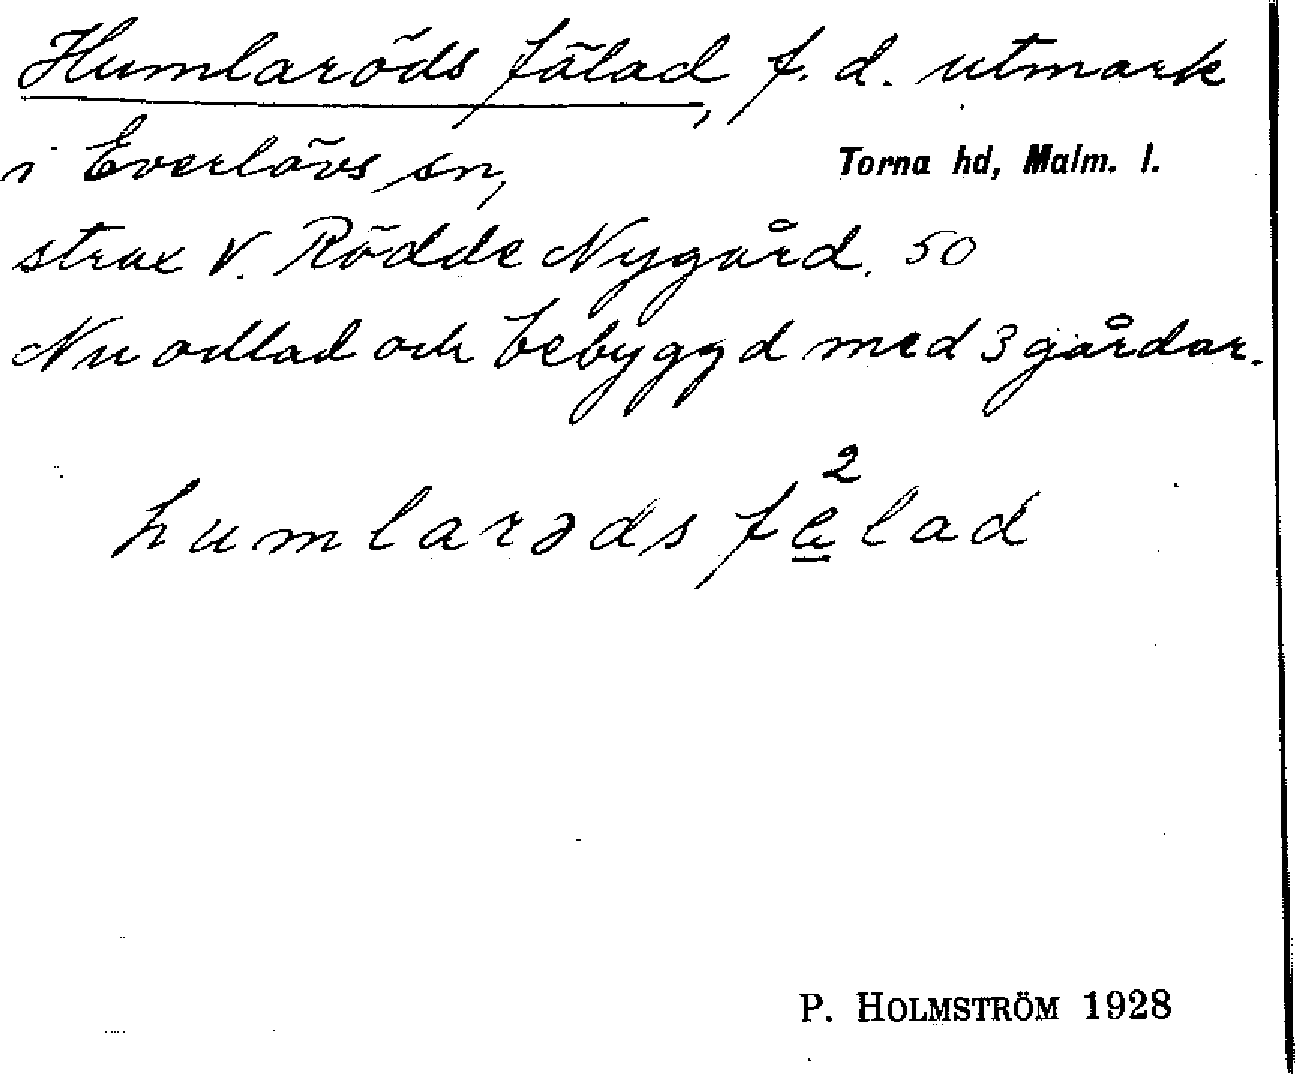 Humlaröds fälad, f. d. utmark
i Everlövs sn, Torna hd, Malm. l.
strax V. Rödde Nygård. 50
Nu odlad och bebyggd med 3 gårdar.
2
humlarəds fälad
P. HOLMSTRÖM 1928